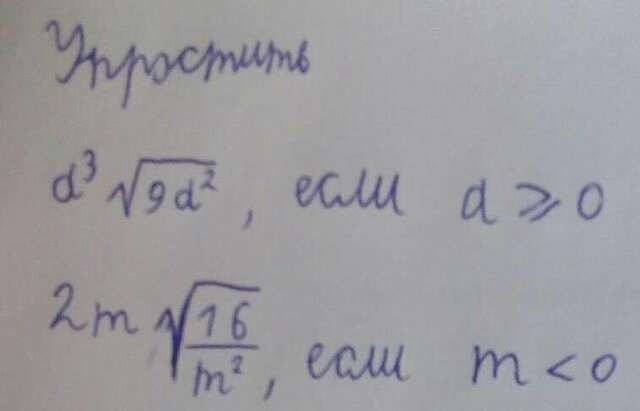 Упростить
a³√(9a²), если a ⩾ 0
2m√(16/m²), если m < 0